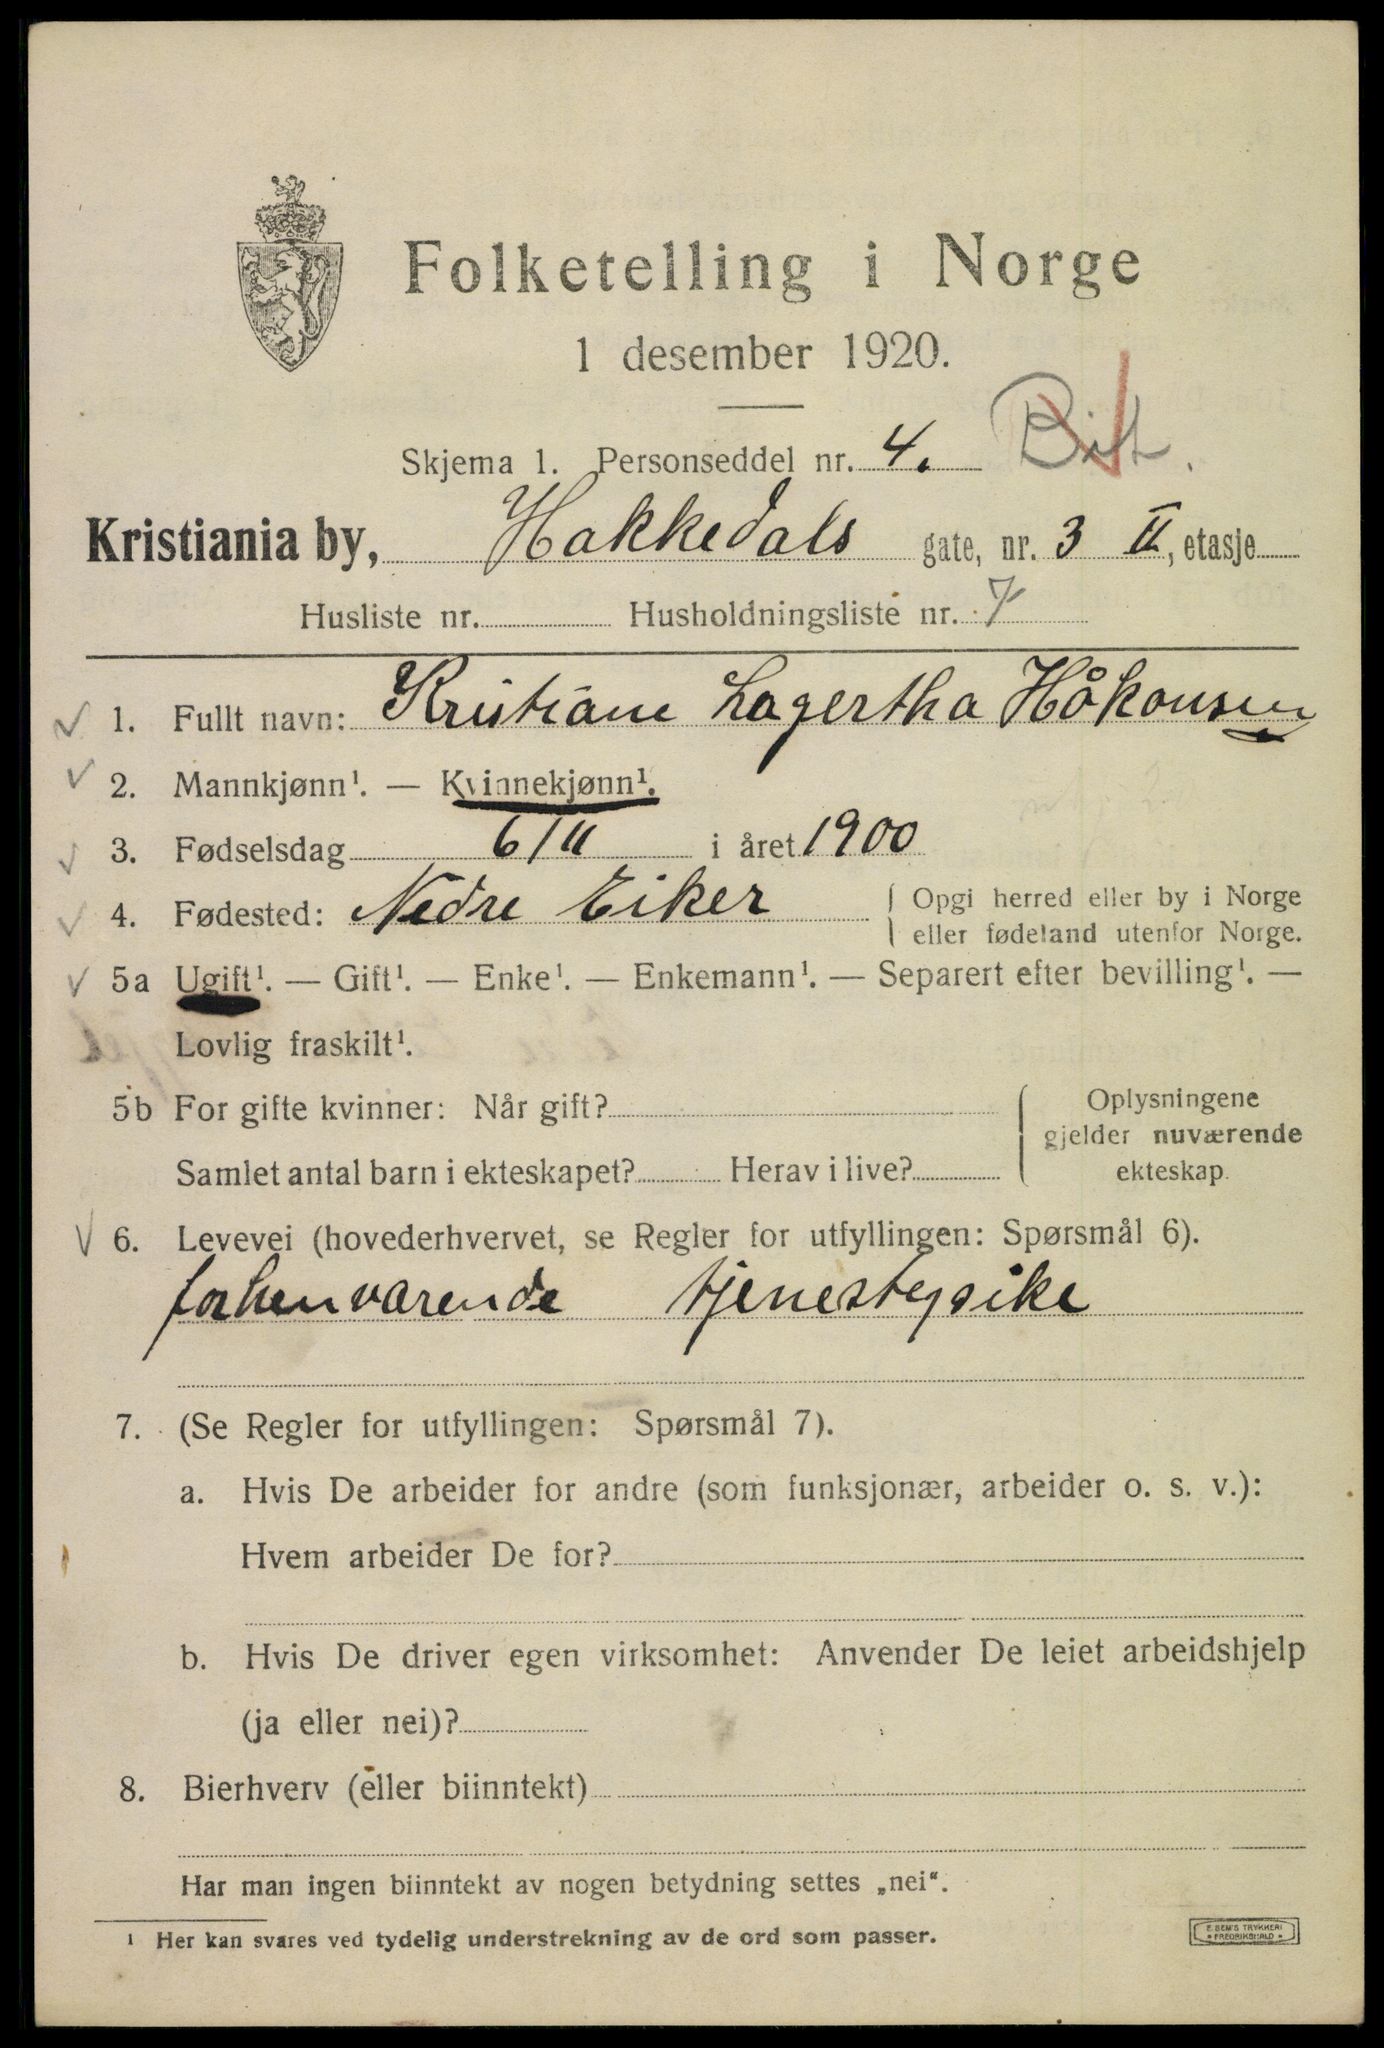 Folketelling i Norge
1 desember 1920.
Skjema 1. Personseddel nr. 4.
Kristiania by, Hakkedals gate, nr. 3 II, etasje
Husliste nr. Husholdningsliste nr. 7
1. Fullt navn: Kristiane Lagertha Håkonsen
2. Mannkjønn¹. — Kvinnekjønn¹.
3. Fødselsdag 6/11 i året 1900
4. Fødested: Nedre Eiker { Opgi herred eller by i Norge
eller fødeland utenfor Norge.
5a Ugift¹. — Gift¹. — Enke¹. — Enkemann¹. — Separert efter bevilling¹. —
Lovlig fraskilt¹.
5b For gifte kvinner: Når gift?
Samlet antal barn i ekteskapet? Herav i live?
Oplysningene
gjelder nuværende
ekteskap.
6. Levevei (hovederhvervet, se Regler for utfyllingen: Spørsmål 6).
forhenværende tjenestepike
7. (Se Regler for utfyllingen: Spørsmål 7).
a. Hvis De arbeider for andre (som funksjonær, arbeider o. s. v.):
Hvem arbeider De for?
b. Hvis De driver egen virksomhet: Anvender De leiet arbeidshjelp
(ja eller nei)?
8. Bierhverv (eller biinntekt)
Har man ingen biinntekt av nogen betydning settes „nei“.
¹ Her kan svares ved tydelig understrekning av de ord som passer.
E. SEM'S TRYKKERI
• FREDRIKSHALD •